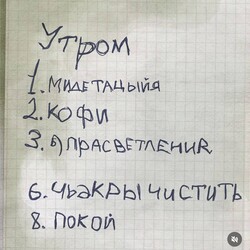 Утром
1. МИДЕТАЦЫЙЯ
2. КОФИ
3. А) ПРАСВЕТЛЕНИЯ
6. ЧЬАКРЫ ЧИСТИТЬ
8. ПОКОЙ